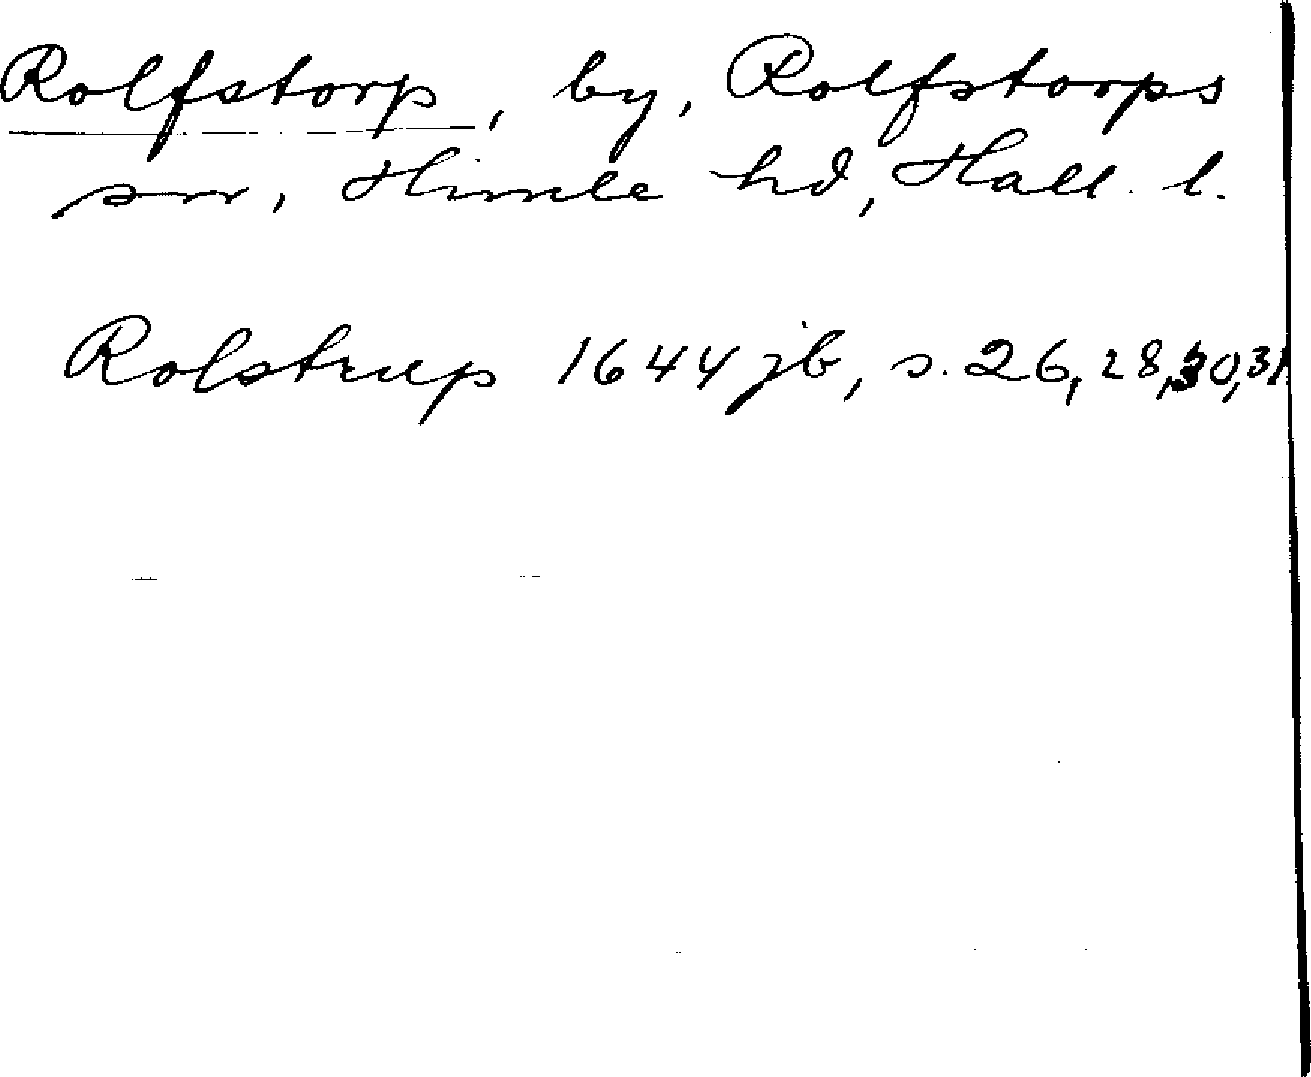 Rolfstorp, by, Rolfstorps
sn, Himle hd, Hall. l.
Rolstrup 1644 jb, s. 26, 28, 30, 31